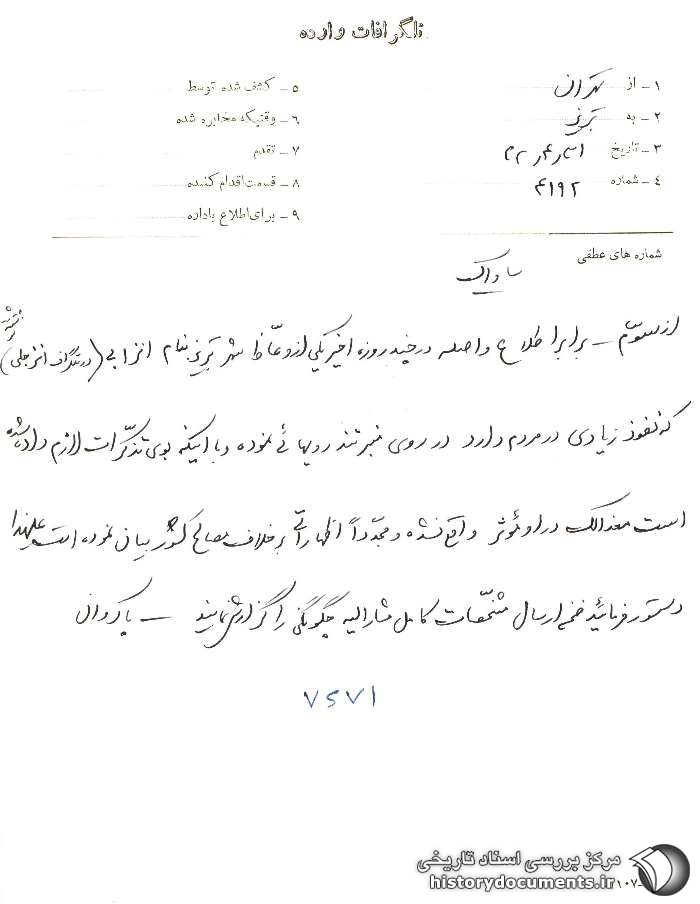 تلگرافات وارده
۱ـ از تهران
۲ـ به تبریز
۳ـ تاریخ
۴ـ شماره ۴۱۹۲
۵ـ کشف شده توسط
۶ـ وقتیکه مخابره شده
۷ـ تقدم
۸ـ قسمت اقدام کننده
۹ـ برای اطلاع باداره
شماره های عطفی
ساواک
از سوم ـ برابر اطلاع واصله در چند روزه اخیر یکی از وعاظ شهر تبریز بنام انزابی (در تلگراف انزجلی)
که نفوذ زیادی در مردم دارد در روی منبر تند رویهائی نموده و با اینکه بوی تذکرات لازم داده شده
است معذالک در او مؤثر واقع نشده و مجدداً اظهاراتی برخلاف مصالح کشور بیان نموده است علیهذا
دستور فرمائید ضمن ارسال مشخصات کامل مشارالیه چگونگی را گزارش نمایند ـ پاکروان
۷۵۷۱
مرکز بررسی اسناد تاریخی
historydocuments.ir
ـ۱۰۷